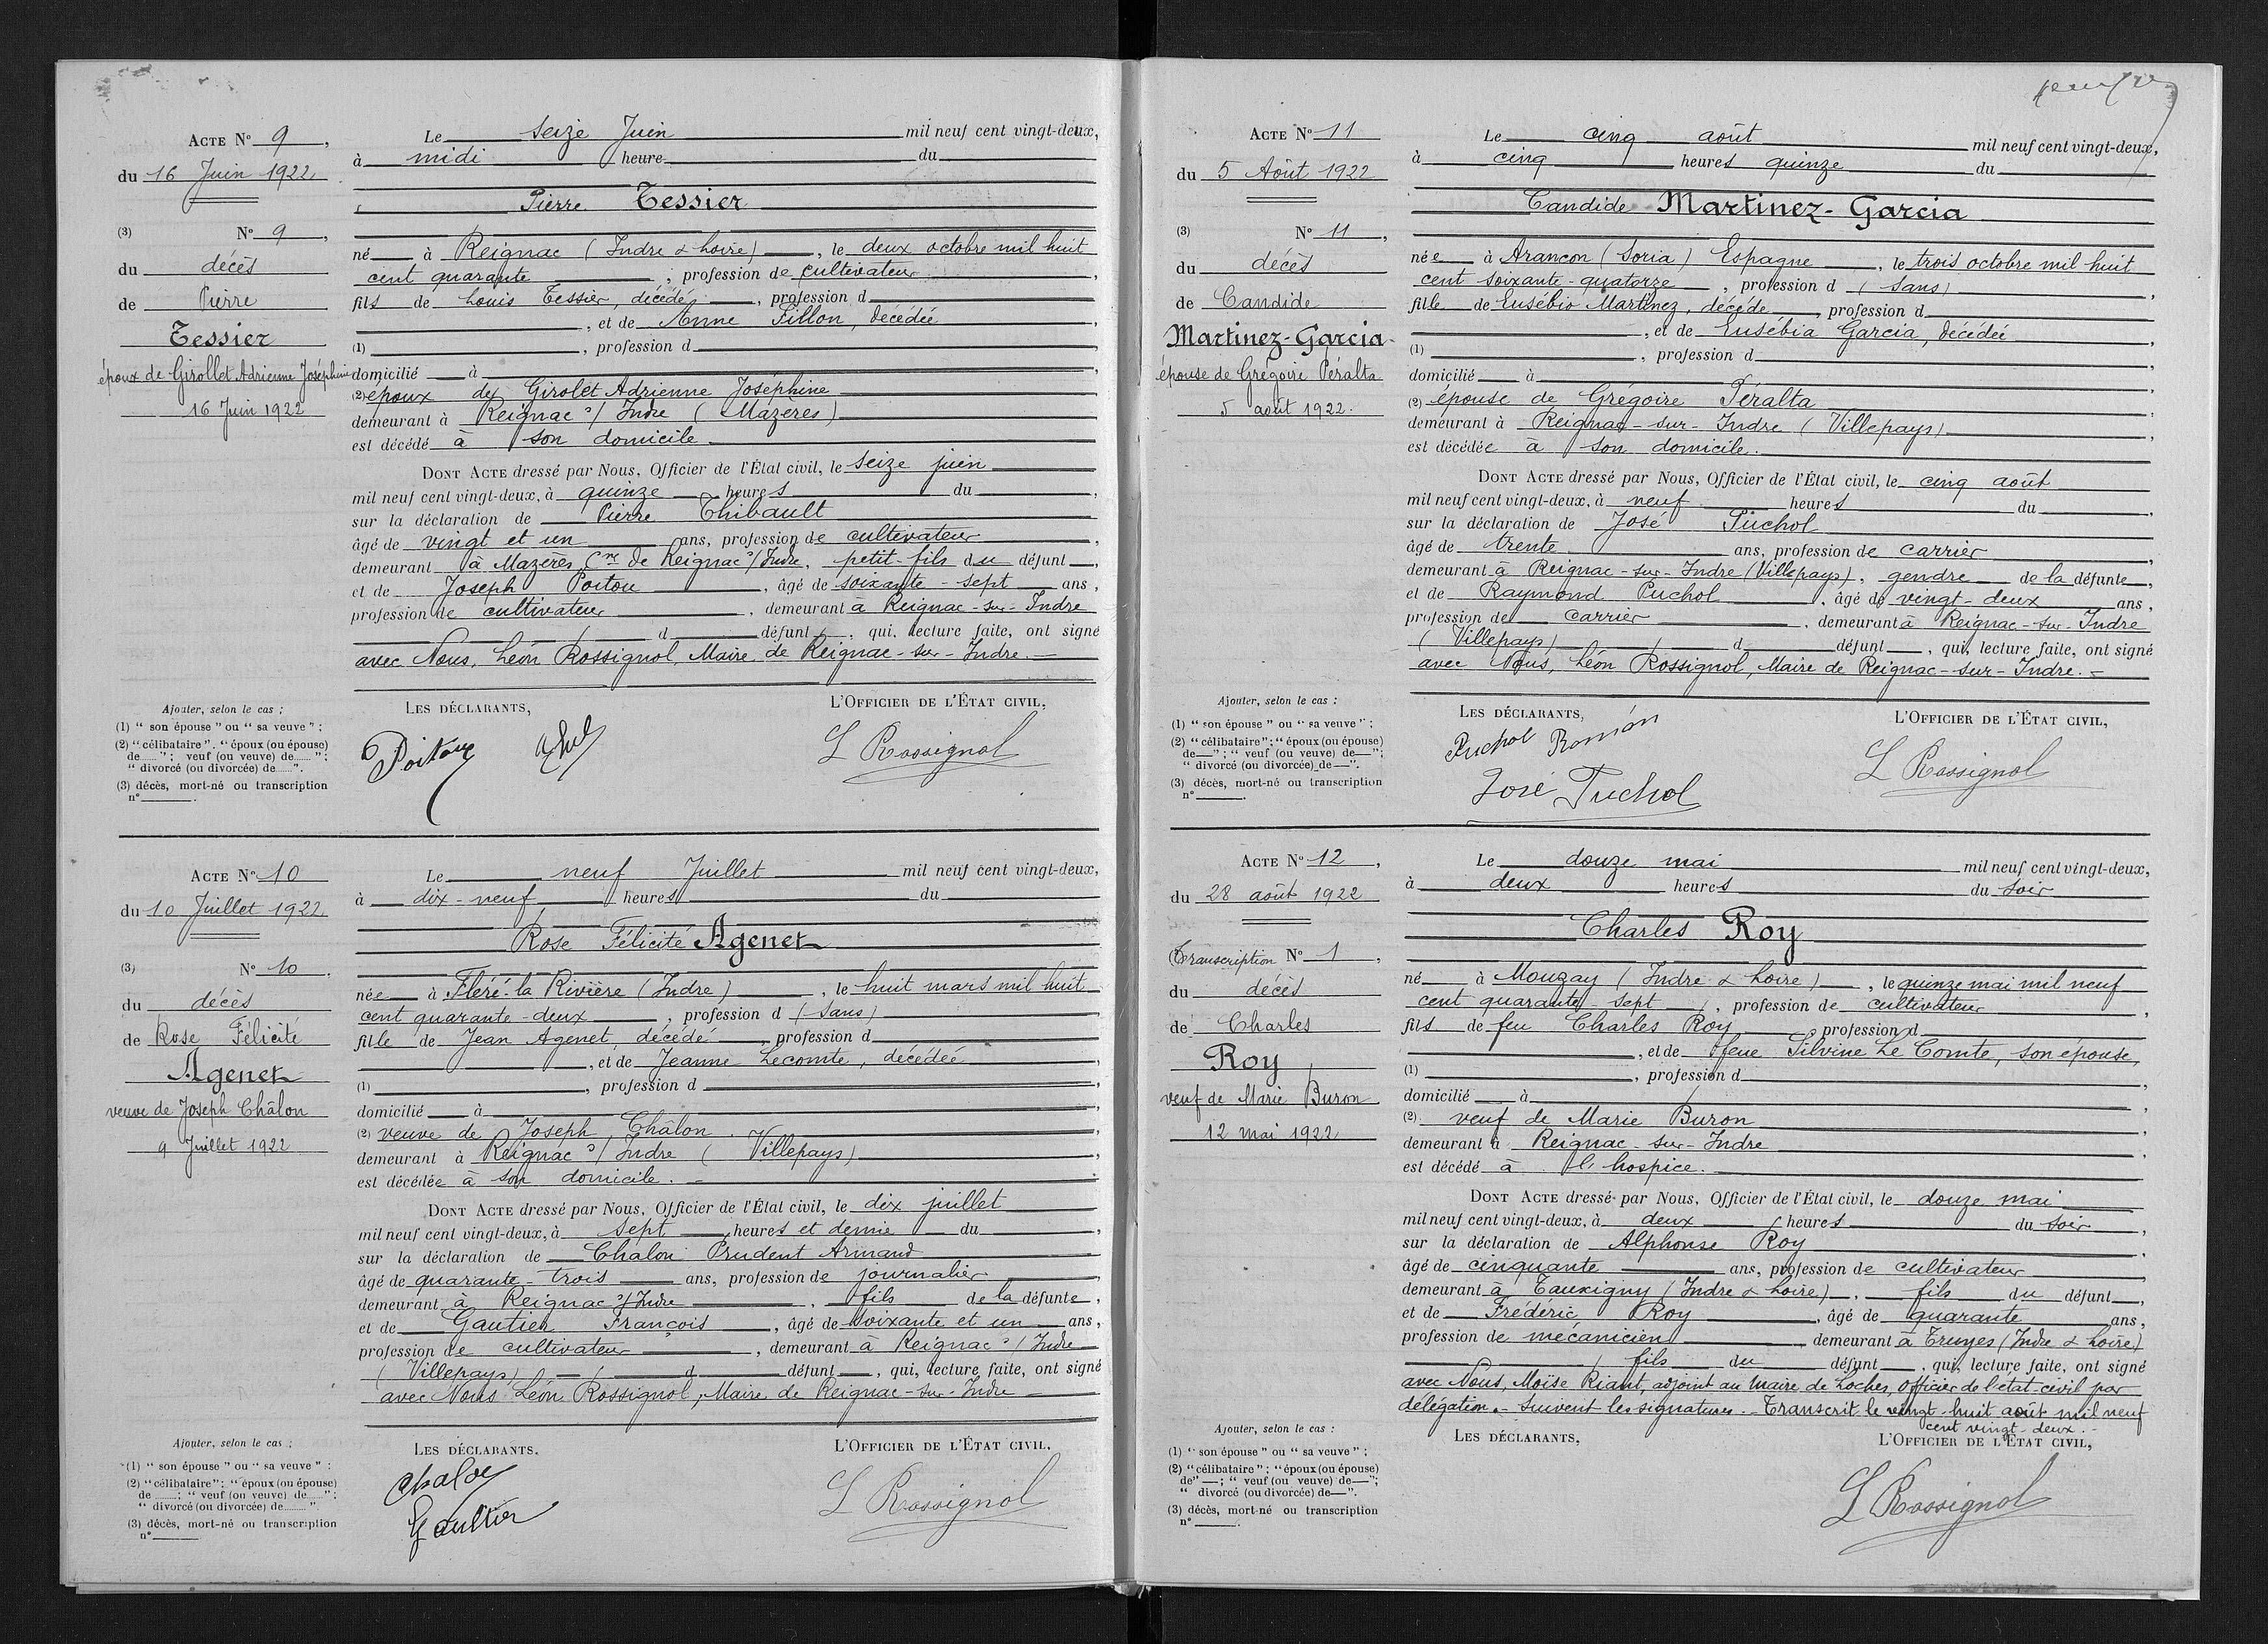 Acte N° 9,
du 16 Juin 1922
(3) N° 9,
du décès
de Pierre
Tessier
époux de Girollet Adrienne Joséphine
16 Juin 1922
Le seize Juin mil neuf cent vingt-deux,
à midi heure du
Pierre Tessier
né à Reignac (Indre & Loire), le deux octobre mil huit
cent quarante, profession de cultivateur,
fils de Louis Tessier, décédé, profession d
, et de Anne Fillon, décédée,
(1) , profession d
domicilié à
(2) époux de Girolet Adrienne Joséphine
demeurant à Reignac s/ Indre (Mazères)
est décédé à son domicile.
Dont Acte dressé par Nous, Officier de l'État civil, le seize juin
mil neuf cent vingt-deux, à quinze heures du ,
sur la déclaration de Pierre Thibault
âgé de vingt et un ans, profession de cultivateur,
demeurant à Mazères Cne de Reignac s/ Indre, petit-fils du défunt,
et de Joseph Poitou, âgé de soixante-sept ans,
profession de cultivateur, demeurant à Reignac-sur-Indre
d défunt , qui, lecture faite, ont signé
avec Nous, Léon Rossignol, Maire de Reignac-sur-Indre.
Ajouter, selon le cas :
(1) " son épouse " ou " sa veuve " ;
(2) " célibataire ". " époux (ou épouse)
de ...... " ; veuf (ou veuve) de ...... " ;
" divorcé (ou divorcée) de ...... ".
(3) décès, mort-né ou transcription
n° .
Les déclarants,
L'Officier de l'État civil,
Poitou
L Rossignol
Acte N° 10
du 10 Juillet 1922
(3) N° 10.
du décès
de Rose Félicité
Agenet
veuve de Joseph Châlon
9 Juillet 1922
Le neuf Juillet mil neuf cent vingt-deux,
à dix-neuf heures du ,
Rose Félicité Agenet
née à Fléré-la Rivière (Indre), le huit mars mil huit
cent quarante-deux, profession d (sans),
fille de Jean Agenet, décédé, profession d
, et de Jeanne Lecomte, décédée,
(1) , profession d ,
domicilié à ,
(2) veuve de Joseph Chalon.
demeurant à Reignac s/ Indre (Villepays),
est décédée à son domicile.
Dont Acte dressé par Nous, Officier de l'État civil, le dix juillet
mil neuf cent vingt-deux, à sept heures et demie du ,
sur la déclaration de Chalon Prudent Armand
âgé de quarante-trois ans, profession de journalier,
demeurant à Reignac s/ Indre, fils de la défunte,
et de Gautier François, âgé de soixante et un ans,
profession de cultivateur, demeurant à Reignac s/ Indre
(Villepays) d défunt , qui, lecture faite, ont signé
avec Nous Léon Rossignol, Maire de Reignac-sur-Indre
Ajouter, selon le cas :
(1) " son épouse " ou " sa veuve " :
(2) " célibataire " ; " époux (ou épouse)
de ...... ; " veuf (ou veuve) de ...... " ;
" divorcé (ou divorcée) de ...... "
(3) décès, mort-né ou transcription
n°
Les déclarants.
L'Officier de l'État civil.
Chalon
Gaultier
L Rossignol
Acte N° 11
du 5 Août 1922
(3) N° 11,
du décès
de Candide
Martinez-Garcia
épouse de Grégoire Péralta
5 août 1922.
Le cinq août mil neuf cent vingt-deux,
à cinq heures quinze du
Candide Martinez-Garcia
née à Arancon (Soria) Espagne, le trois octobre mil huit
cent soixante-quatorze, profession d (sans),
fille de Eusébio Martinez, décédé, profession d
, et de Eusébia Garcia, décédée,
(1) , profession d
domicilié à ,
(2) épouse de Grégoire Péralta
demeurant à Reignac-sur-Indre (Villepays),
est décédée à son domicile.
Dont Acte dressé par Nous, Officier de l'État civil, le cinq août
mil neuf cent vingt-deux, à neuf heures du ,
sur la déclaration de José Puchol
âgé de trente ans, profession de carrier,
demeurant à Reignac-sur-Indre (Villepays), gendre de la défunte,
et de Raymond Puchol, âgé de vingt-deux ans,
profession de carrier, demeurant à Reignac-sur-Indre
(Villepays) d défunt , qui, lecture faite, ont signé
avec Nous, Léon Rossignol, Maire de Reignac-sur-Indre.
Ajouter, selon le cas :
(1) " son épouse " ou " sa veuve " ;
(2) " célibataire " ; " époux (ou épouse)
de — " ; " veuf (ou veuve) de — " ;
" divorcé (ou divorcée) de — ".
(3) décès, mort-né ou transcription
n° .
Les déclarants,
L'Officier de l'État civil,
Puchol Román
José Puchol
L Rossignol
Acte N° 12,
du 28 août 1922
Transcription N° 1,
du décès
de Charles
Roy
veuf de Marie Buron
12 mai 1922
Le douze mai mil neuf cent vingt-deux,
à deux heures du soir
Charles Roy
né à Mouzay (Indre & Loire), le quinze mai mil neuf
cent quarante-sept, profession de cultivateur,
fils de feu Charles Roy, profession d
, et de feue Silvine Le Comte, son épouse,
(1) , profession d
domicilié à ,
(2) veuf de Marie Buron
demeurant à Reignac-sur-Indre,
est décédé à l'hospice.
Dont Acte dressé par Nous, Officier de l'État civil, le douze mai
mil neuf cent vingt-deux, à deux heures du soir,
sur la déclaration de Alphonse Roy
âgé de cinquante ans, profession de cultivateur,
demeurant à Tauxigny (Indre & Loire), fils du défunt,
et de Frédéric Roy, âgé de quarante ans,
profession de mécanicien demeurant à Truyes (Indre & Loire)
fils du défunt , qui, lecture faite, ont signé
avec Nous, Moïse Riant, adjoint au Maire de Loches, officier de l'état-civil par
délégation. - Suivent les signatures. - Transcrit le vingt-huit août mil neuf
cent vingt-deux.
Ajouter, selon le cas :
(1) " son épouse " ou " sa veuve " ;
(2) " célibataire " ; " époux (ou épouse)
de " — ; " veuf (ou veuve) de — " ;
" divorcé (ou divorcée) de — ".
(3) décès, mort-né ou transcription
n° .
Les déclarants,
L'Officier de l'État civil,
L Rossignol